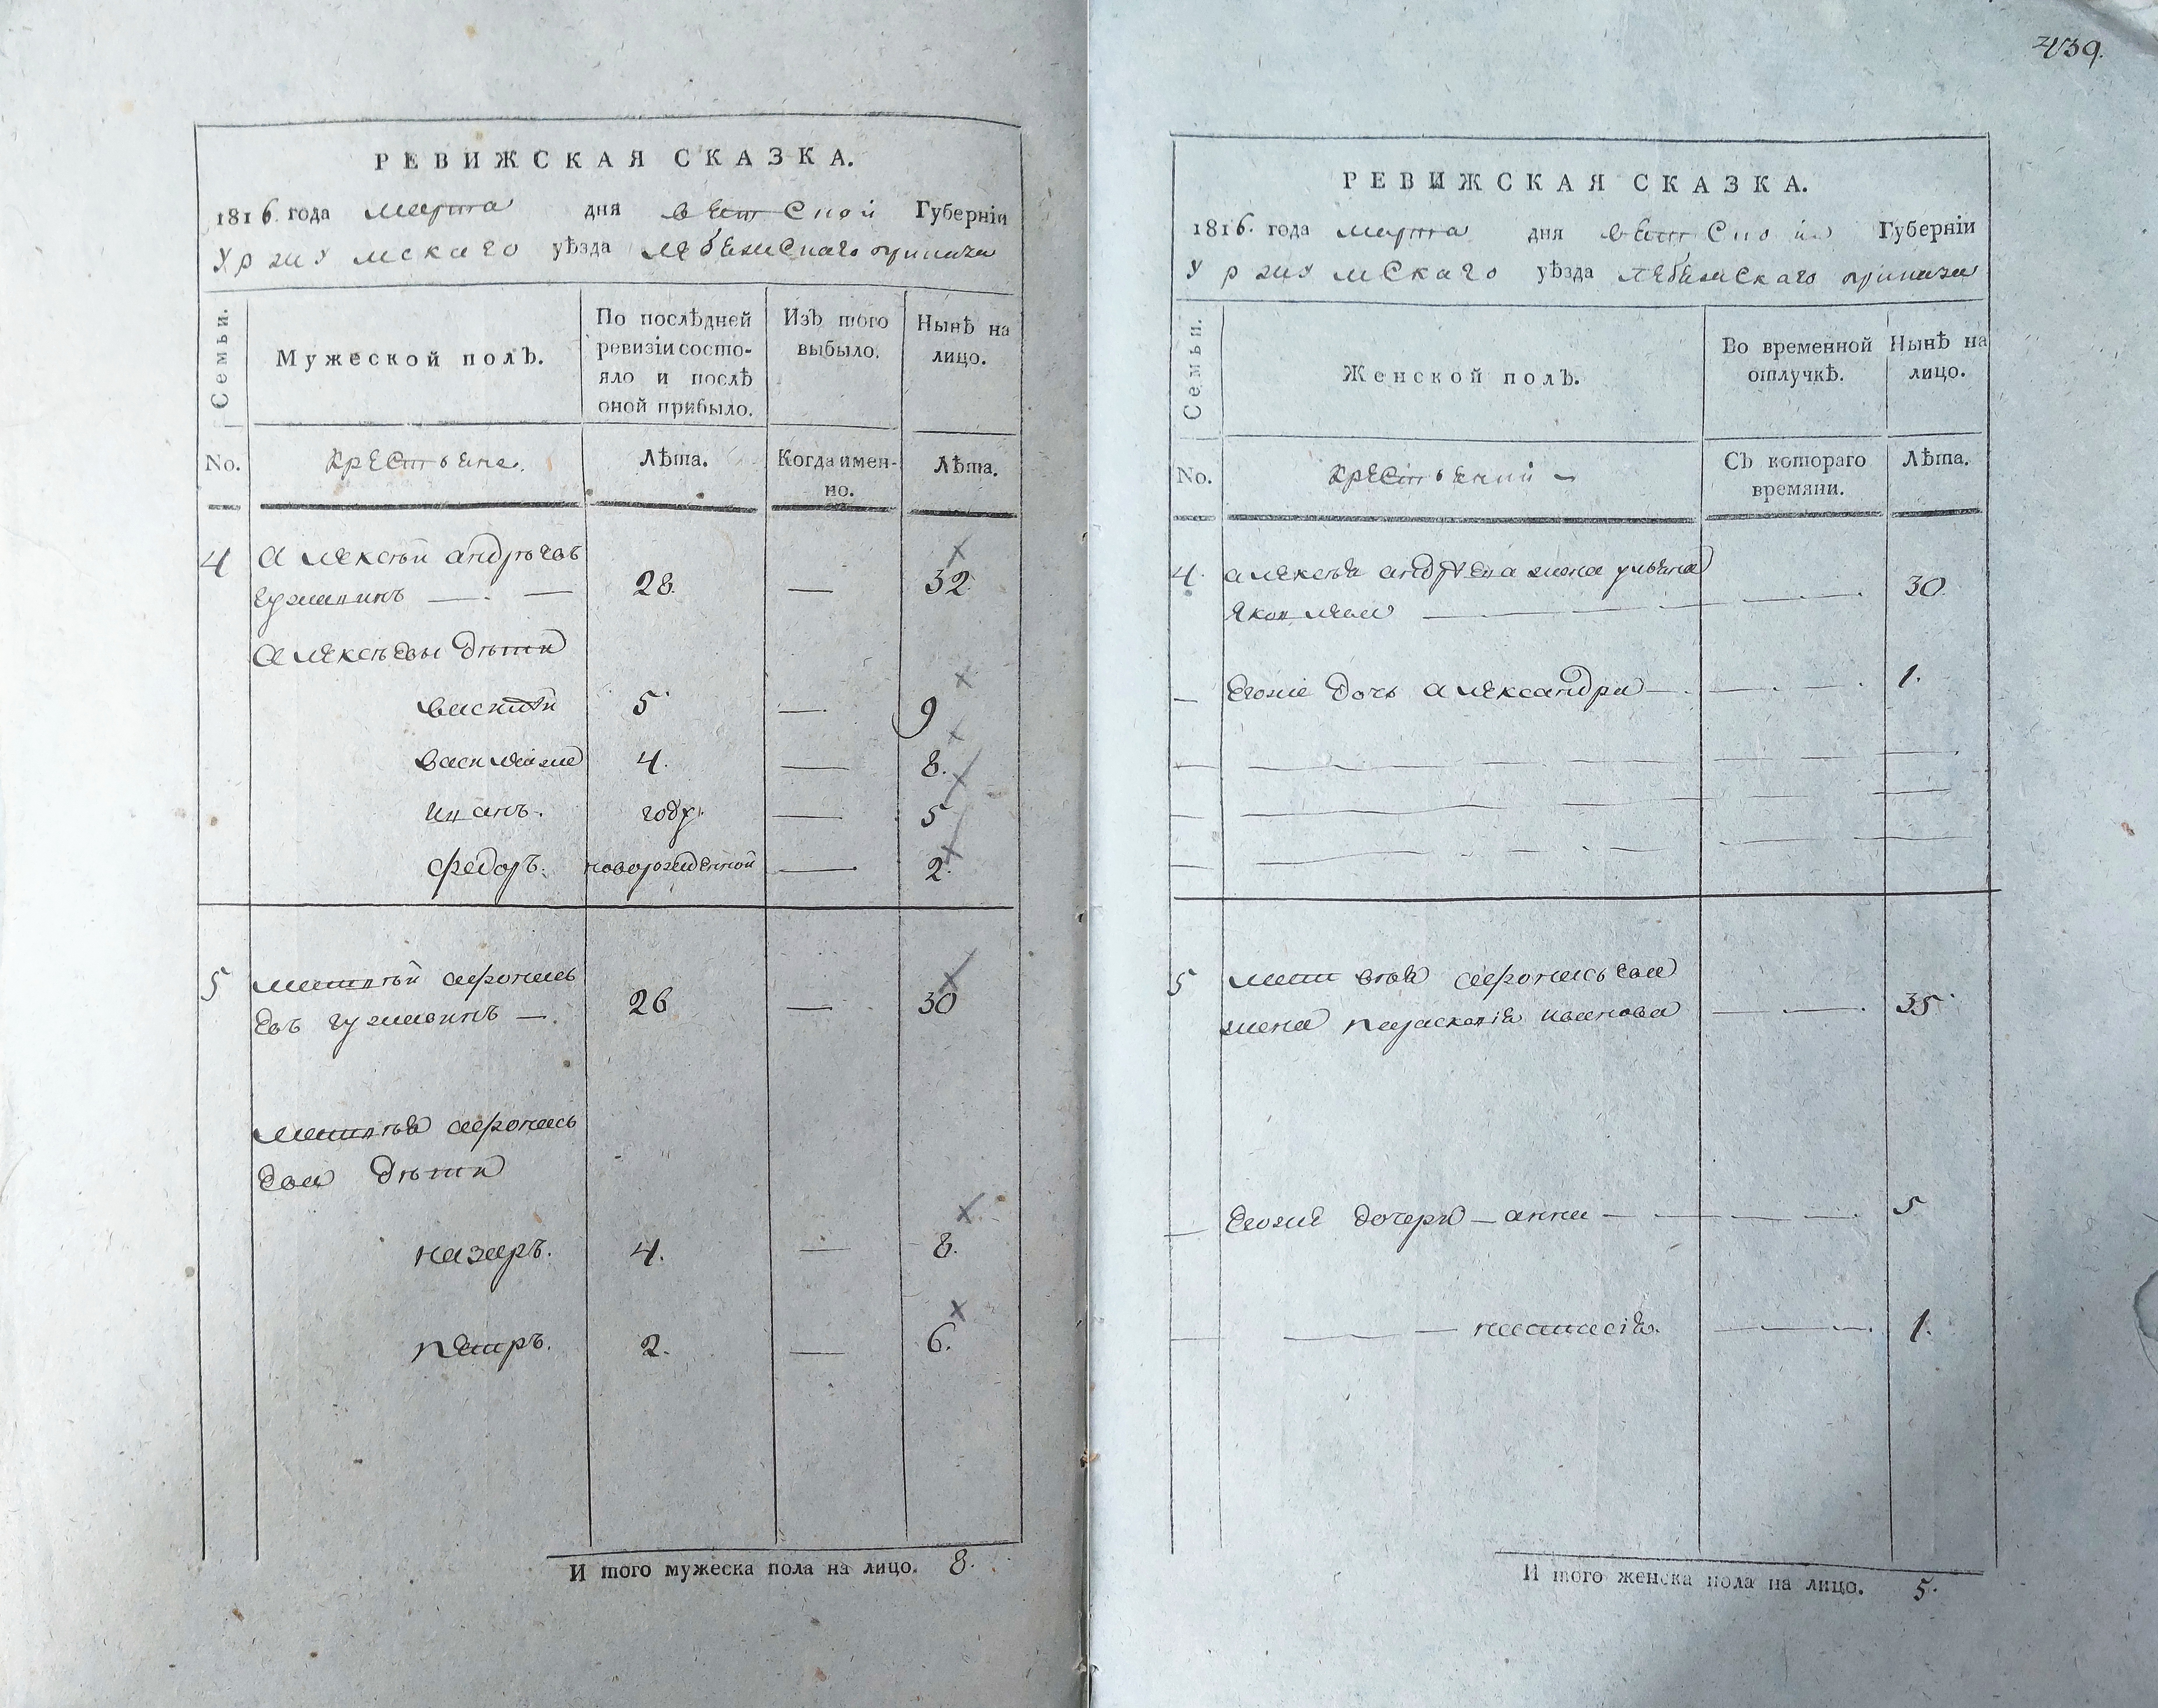 РЕВИЖСКАЯ СКАЗКА.
1816 года марта дня вятской Губерніи
Уржумскаго уѣзда лебежскаго приказа
Семьи.
Мужеской полъ.
По послѣдней ревизіи состояло и послѣ оной прибыло.
Изъ того выбыло.
Нынѣ на лицо.
No.
крестьяне.
Лѣта.
Когда именно.
Лѣта.
4 алексѣй андрѣевъ
гужавинъ — — 28. — 32
алексѣевы дѣти
василей 5 — 9
василейже 4. — 8.
иванъ. году. — 5
федоръ. новорожденной — 2.
5 матвѣй афонась
евъ гужавинъ — 26 — 30
матвѣя афонась
ева дѣти
назаръ. 4. — 8.
петръ. 2. — 6.
И того мужеска пола на лицо. 8.
439.
РЕВИЖСКАЯ СКАЗКА.
1816. года марта дня вятской Губерніи
Уржумскаго уѣзда лебежскаго приказа
Семьи.
Женской полъ.
Во временной отлучкѣ.
Нынѣ на лицо.
No.
Съ котораго времяни.
Лѣта.
4. алексѣя андреева жена ульяна
яковлева — 30
— Егоже дочь александра — 1.
5 матвѣя афонасьева
жена параскевія иванова — 35
— Егоже дочери — анна — 5
— настасія. — 1.
И того женска пола на лицо. 5.